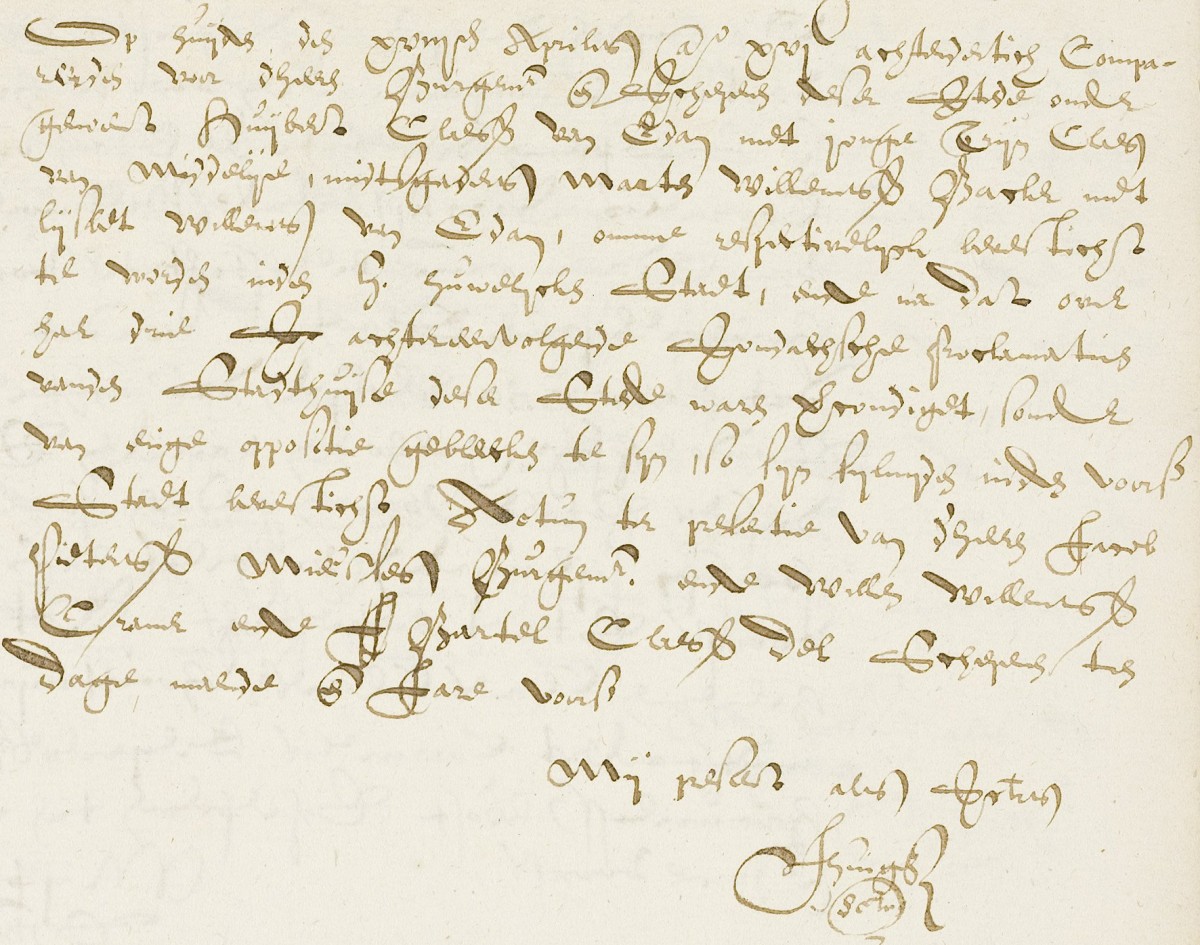 Op huijden den xviijen Aprilis ao xvjc achtendertich Compa-
rerden voor dheeren Burgemrs en Schepenen deser Stede onder
genoemt Huijbert Claesz van Edam met jonge Trijn Claes
van Middelije, midtsgaders Marten Willemsz Backer met
lijsbet Willems van Edam, omme respectivelijck bevesticht
te worden inden h. huwelijcken Staet, ende na dat over
haer drie achtereenvolgende Sondaechsche proclamatien
vanden Stadthuijse deser Stede waren vercondiget, sonder
van enige oppositie gebleeken te sijn, so sijn sijluijden inden voors
Staet bevesticht. Actum ter presentie van d'heeren Jacob
Pietersz Burgemr. ende Willem Willemsz
Cramer ende Bartel Claesz Schepenen ten
dage, maende en Jare voors
Mij present als Secrets